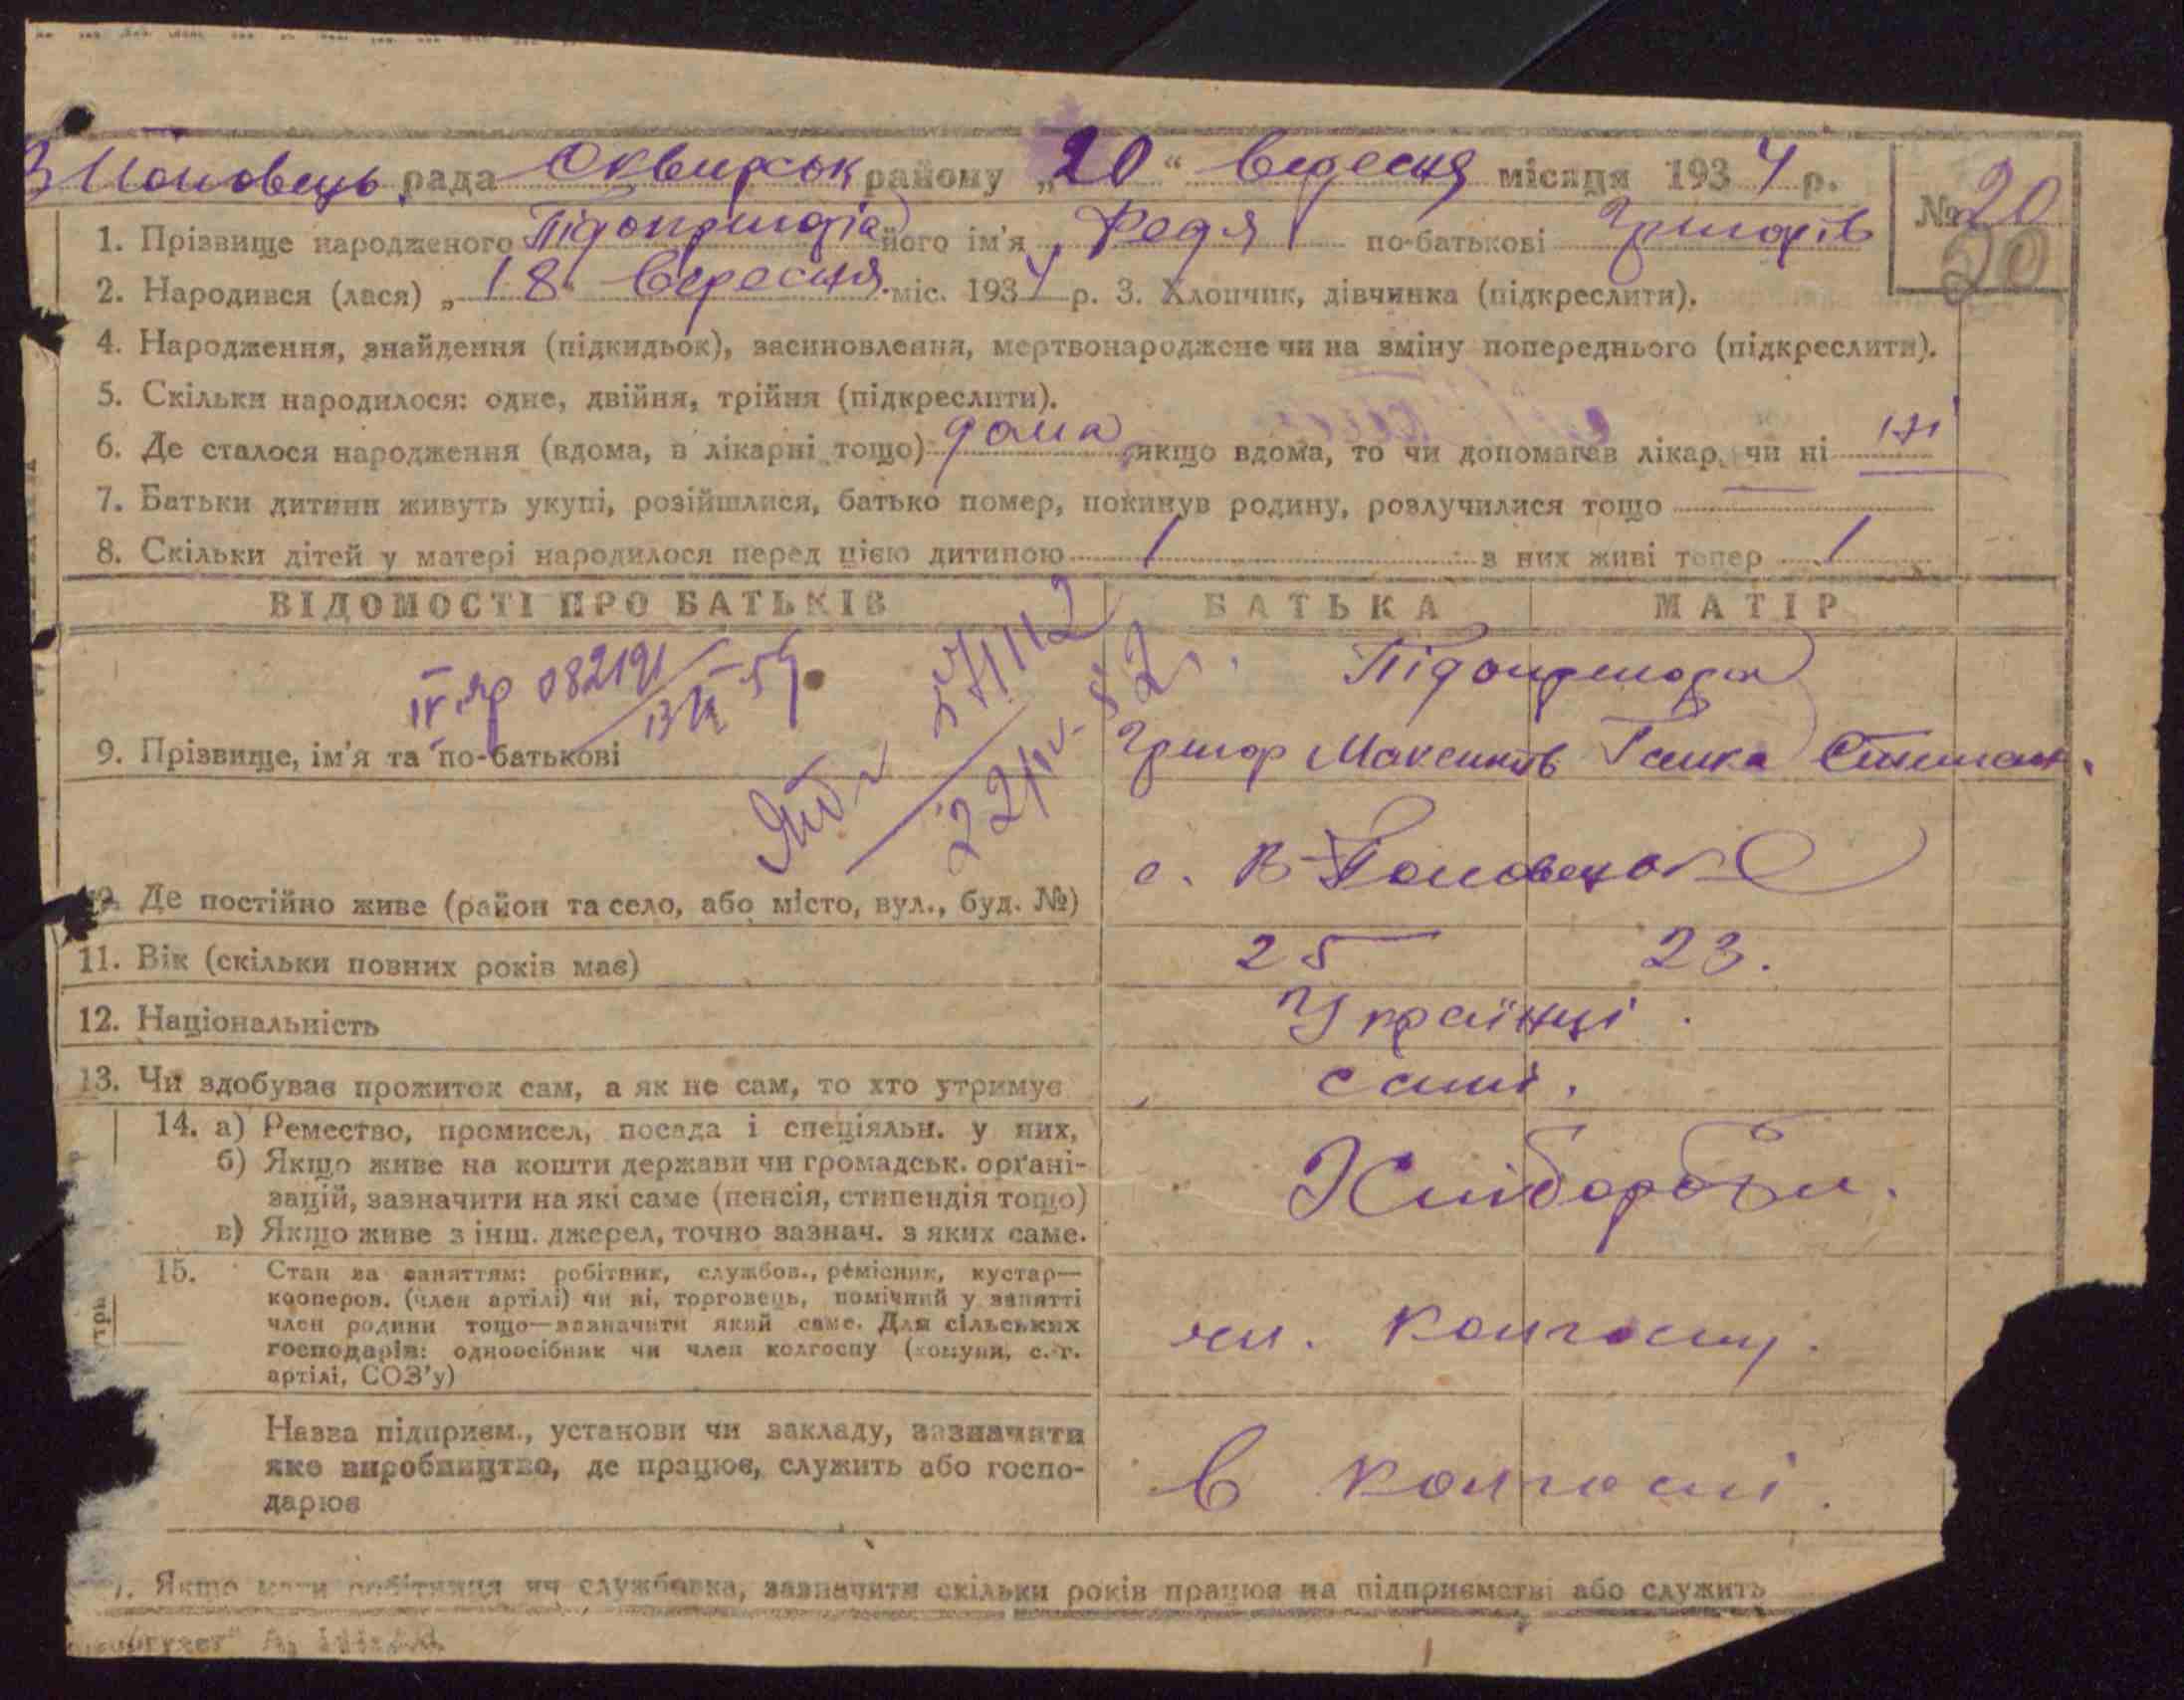 В Половець рада Сквирськ району „20“ вересня місяця 1934 р.
№ 20
20
1. Прізвище народженого Підопригора його ім'я Федя по-батькові Григорів
2. Народився (лася) „18 вересня міс. 1934 р. 3. Хлопчик, дівчинка (підкреслити).
4. Народження, знайдення (підкидьок), засиновлення, мертвонароджене чи на зміну попереднього (підкреслити).
5. Скільки народилося: одне, двійня, трійня (підкреслити).
6. Де сталося народження (вдома, в лікарні тощо) дома якщо вдома, то чи допомагав лікар, чи ні ні
7. Батьки дитини живуть укупі, розійшлися, батько помер, покинув родину, розлучилися тощо
8. Скільки дітей у матері народилося перед цією дитиною 1 з них живі тепер 1
ВІДОМОСТІ ПРО БАТЬКІВ БАТЬКА МАТІР
Підопригора
9. Прізвище, ім'я та по-батькові Григор Максимів Ганка Степан.
10. Де постійно живе (район та село, або місто, вул., буд. №) с. В-Половецьк
11. Вік (скільки повних років має) 25 23.
12. Національність Українці.
13. Чи здобуває прожиток сам, а як не сам, то хто утримує самі.
14. а) Ремество, промисел, посада і спеціяльн. у них,
б) Якщо живе на кошти держави чи громадськ. орґані-
зацій, зазначити на які саме (пенсія, стипендія тощо) Хлібороби.
в) Якщо живе з інш. джерел, точно зазнач. з яких саме.
15. Стан за заняттям: робітник, службов., ремісник, кустар—
кооперов. (член артілі) чи ні, торговець, помічний у занятті
член родини тощо—зазначити який саме. Для сільських
господарів: одноосібник чи член колгоспу (комуни, с.-г.
артілі, СОЗ'у) чл. колгоспу.
Назва підприєм., установи чи закладу, зазначити
яке виробництво, де працює, служить або госпо-
дарює в колгоспі.
Якщо мати робітниця чи службовка, зазначити скільки років працює на підприємстві або служить